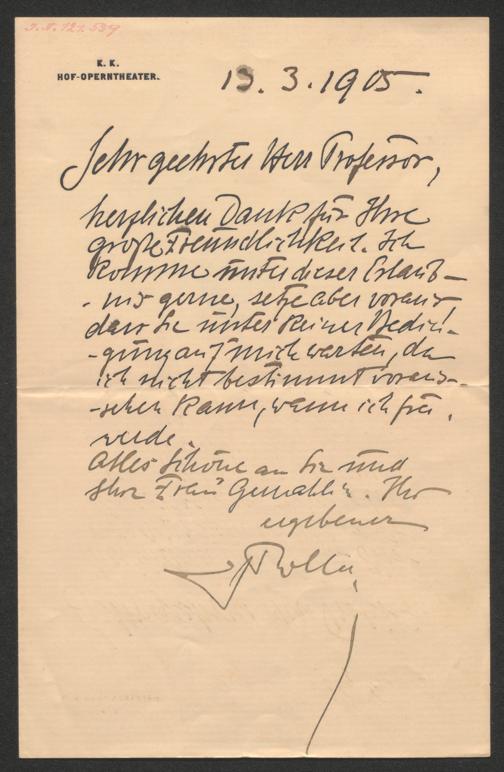 J.N. 121.539
K. K.
HOF-OPERNTHEATER.
13. 3. 1905.
Sehr geehrter Herr Professor,
herzlichen Dank für Ihre
große Freundlichkeit. Ich
komme unter dieser Erlaub-
-nis gerne, setze aber voraus,
dass Sie unter keiner Bedin-
-gung auf mich warten, da
ich nicht bestimmt voraus-
-sehen kann, wann ich frei
werde.
Alles Schöne an Sie und
Ihre Frau Gemahlin. Ihr
ergebener
Roller